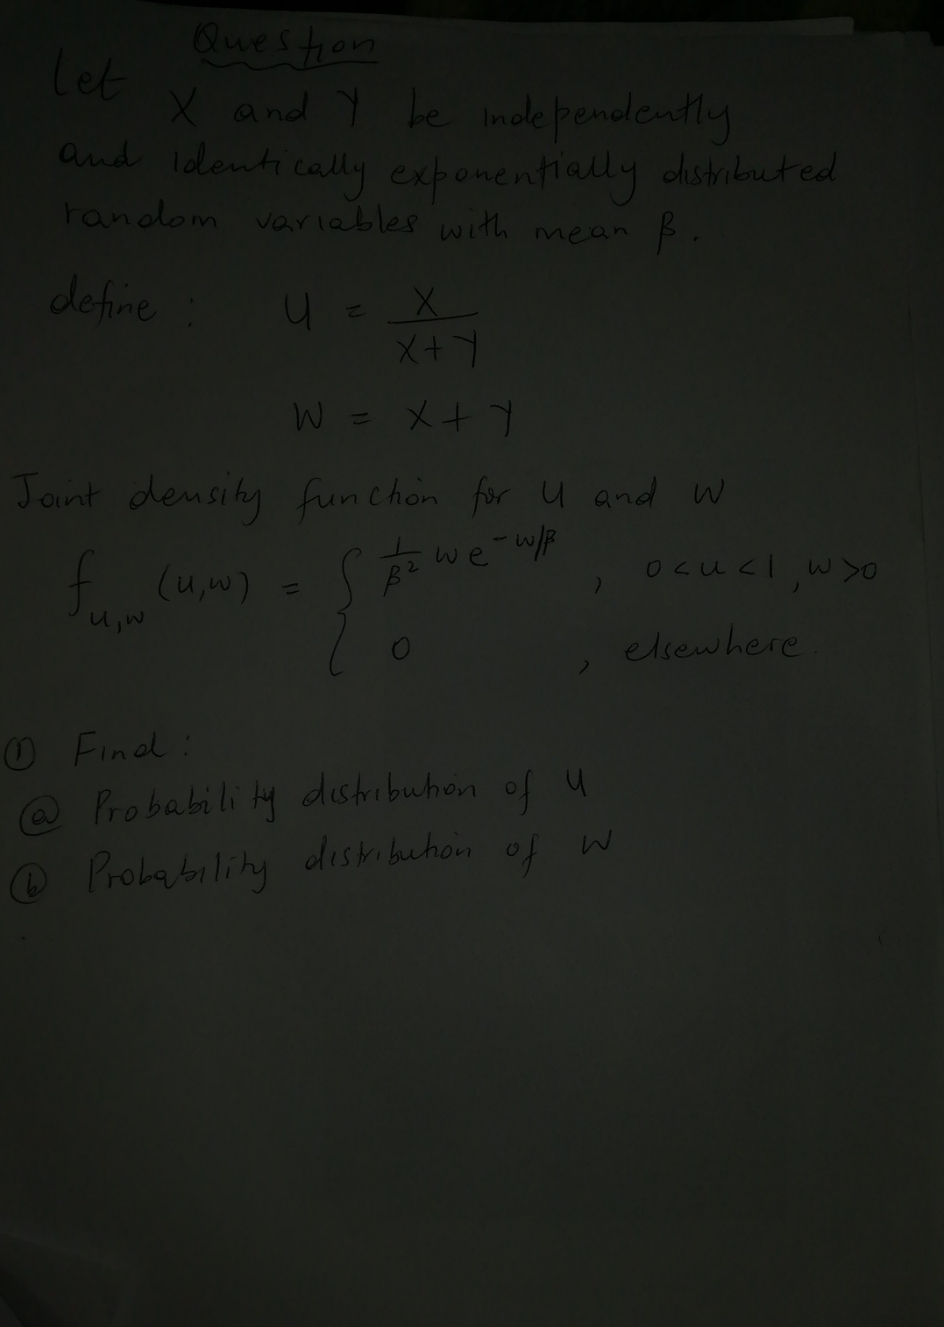 Question
Let X and Y be independently
and identically exponentially distributed
random variables with mean β.
define : U = X / X+Y
W = X + Y
Joint density function for U and W
f_{u,w} (u,w) = { 1/β² w e^{-w/β} , 0<u<1, w>0
0 , elsewhere.
① Find :
ⓐ Probability distribution of U
ⓑ Probability distribution of W